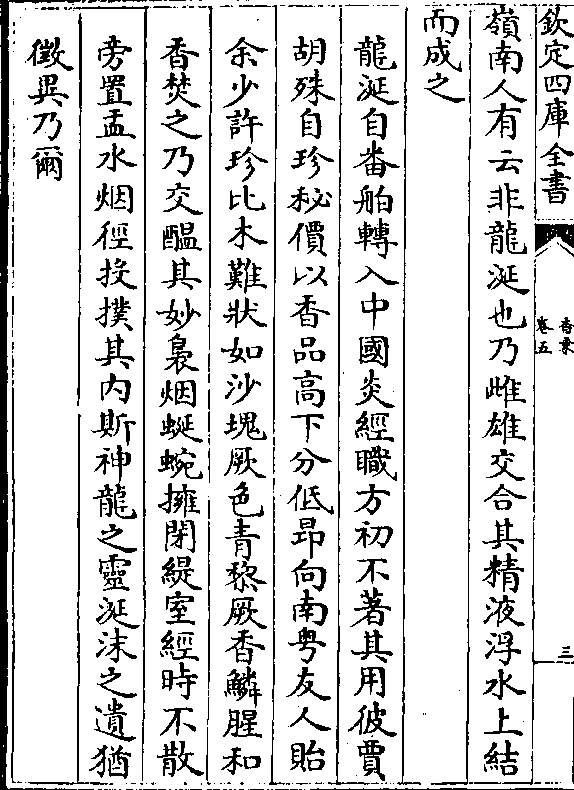 欽定四庫全書
香乘
卷五
三
嶺南人有云非龍涎也乃雌雄交合其精液浮水上結
而成之
龍涎自番舶轉入中國炎經職方初不著其用彼賈
胡殊自珍秘價以香品高下分低昂向南粤友人貽
余少許珍比木難狀如沙塊厥色青黎厥香鱗腥和
香焚之乃交醖其妙裊烟蜒蜿擁閉緹室經時不散
旁置盂水烟徑投撲其内斯神龍之靈涎沫之遺猶
徵異乃爾